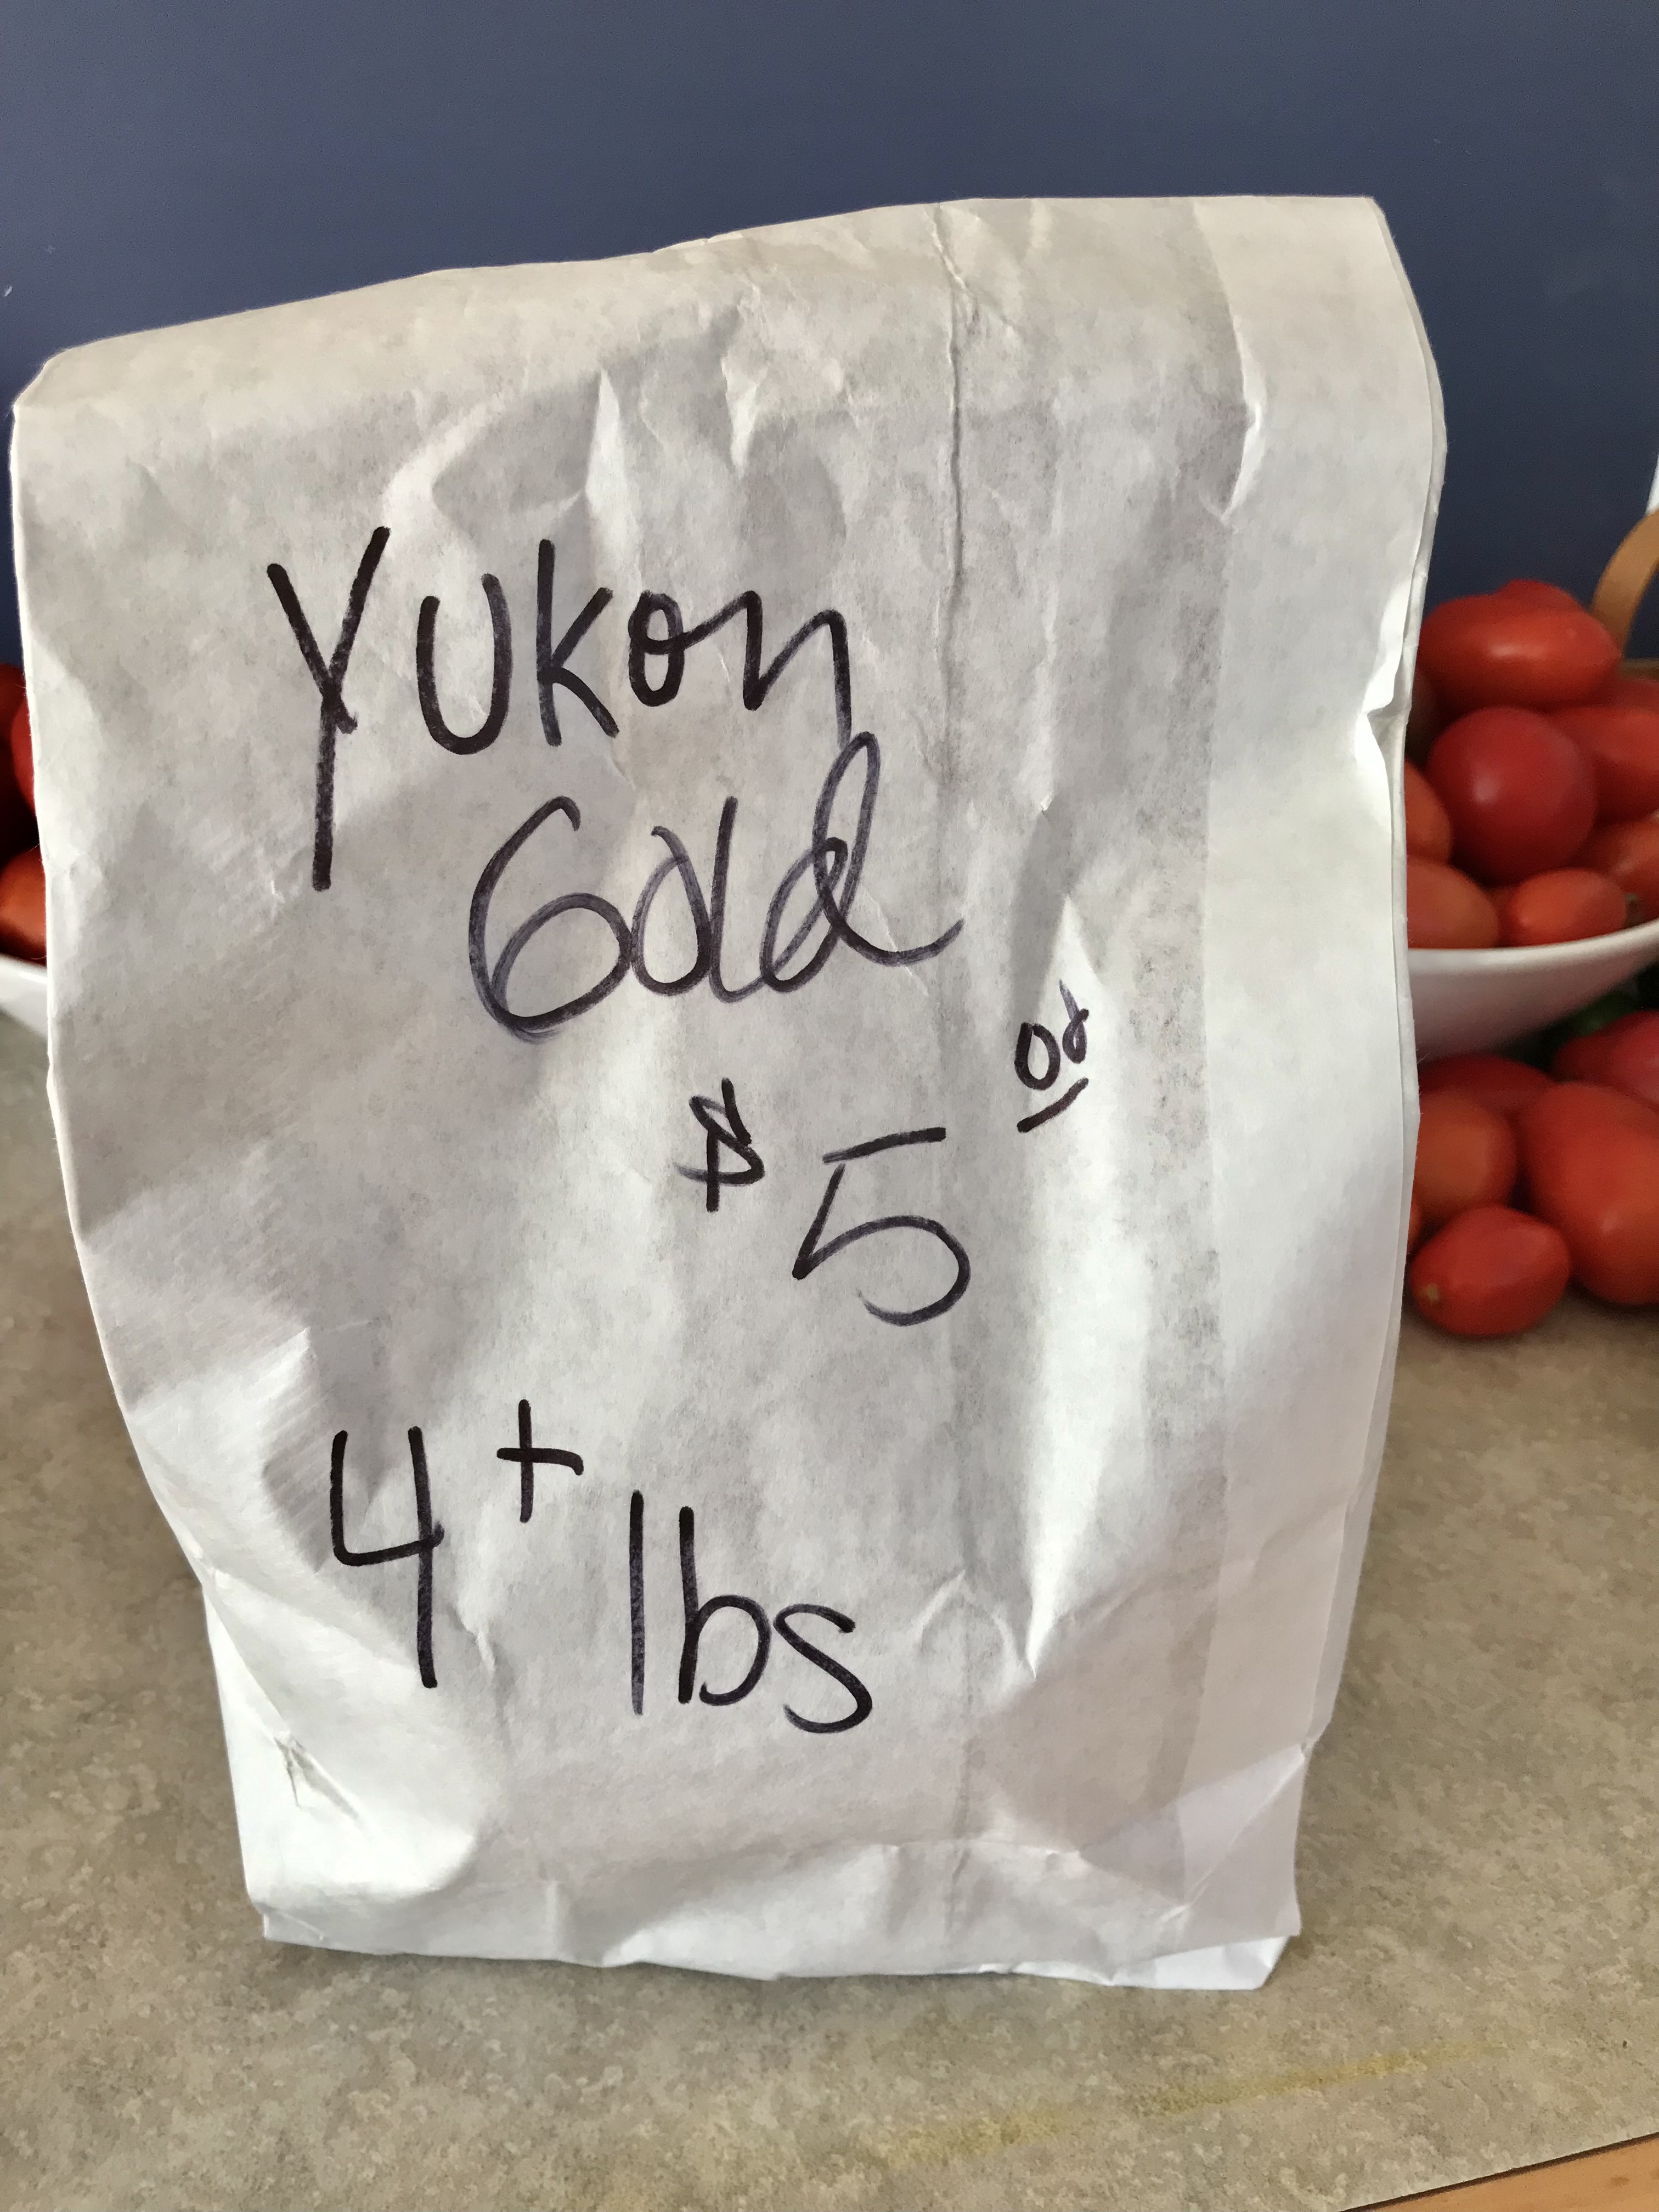 Yukon
Gold
$ 5 00
4+ lbs